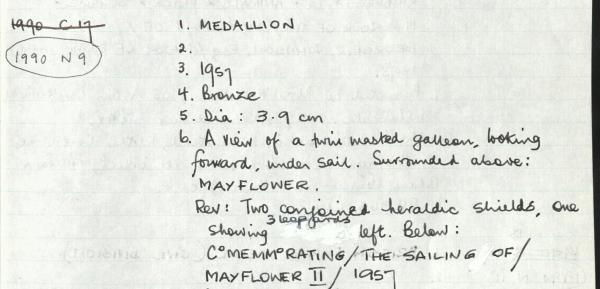 1990 C 17
1990 N 9
1. MEDALLION
2.
3. 1957
4. Bronze
5. Dia: 3.9 cm
6. A view of a twin masted galleon, looking
forward, under sail. Surrounded above:
MAYFLOWER.
Rev: Two conjoined heraldic shields, one
showing 3 leopards left. Below:
COMEMMORATING/THE SAILING OF/
MAYFLOWER II/1957